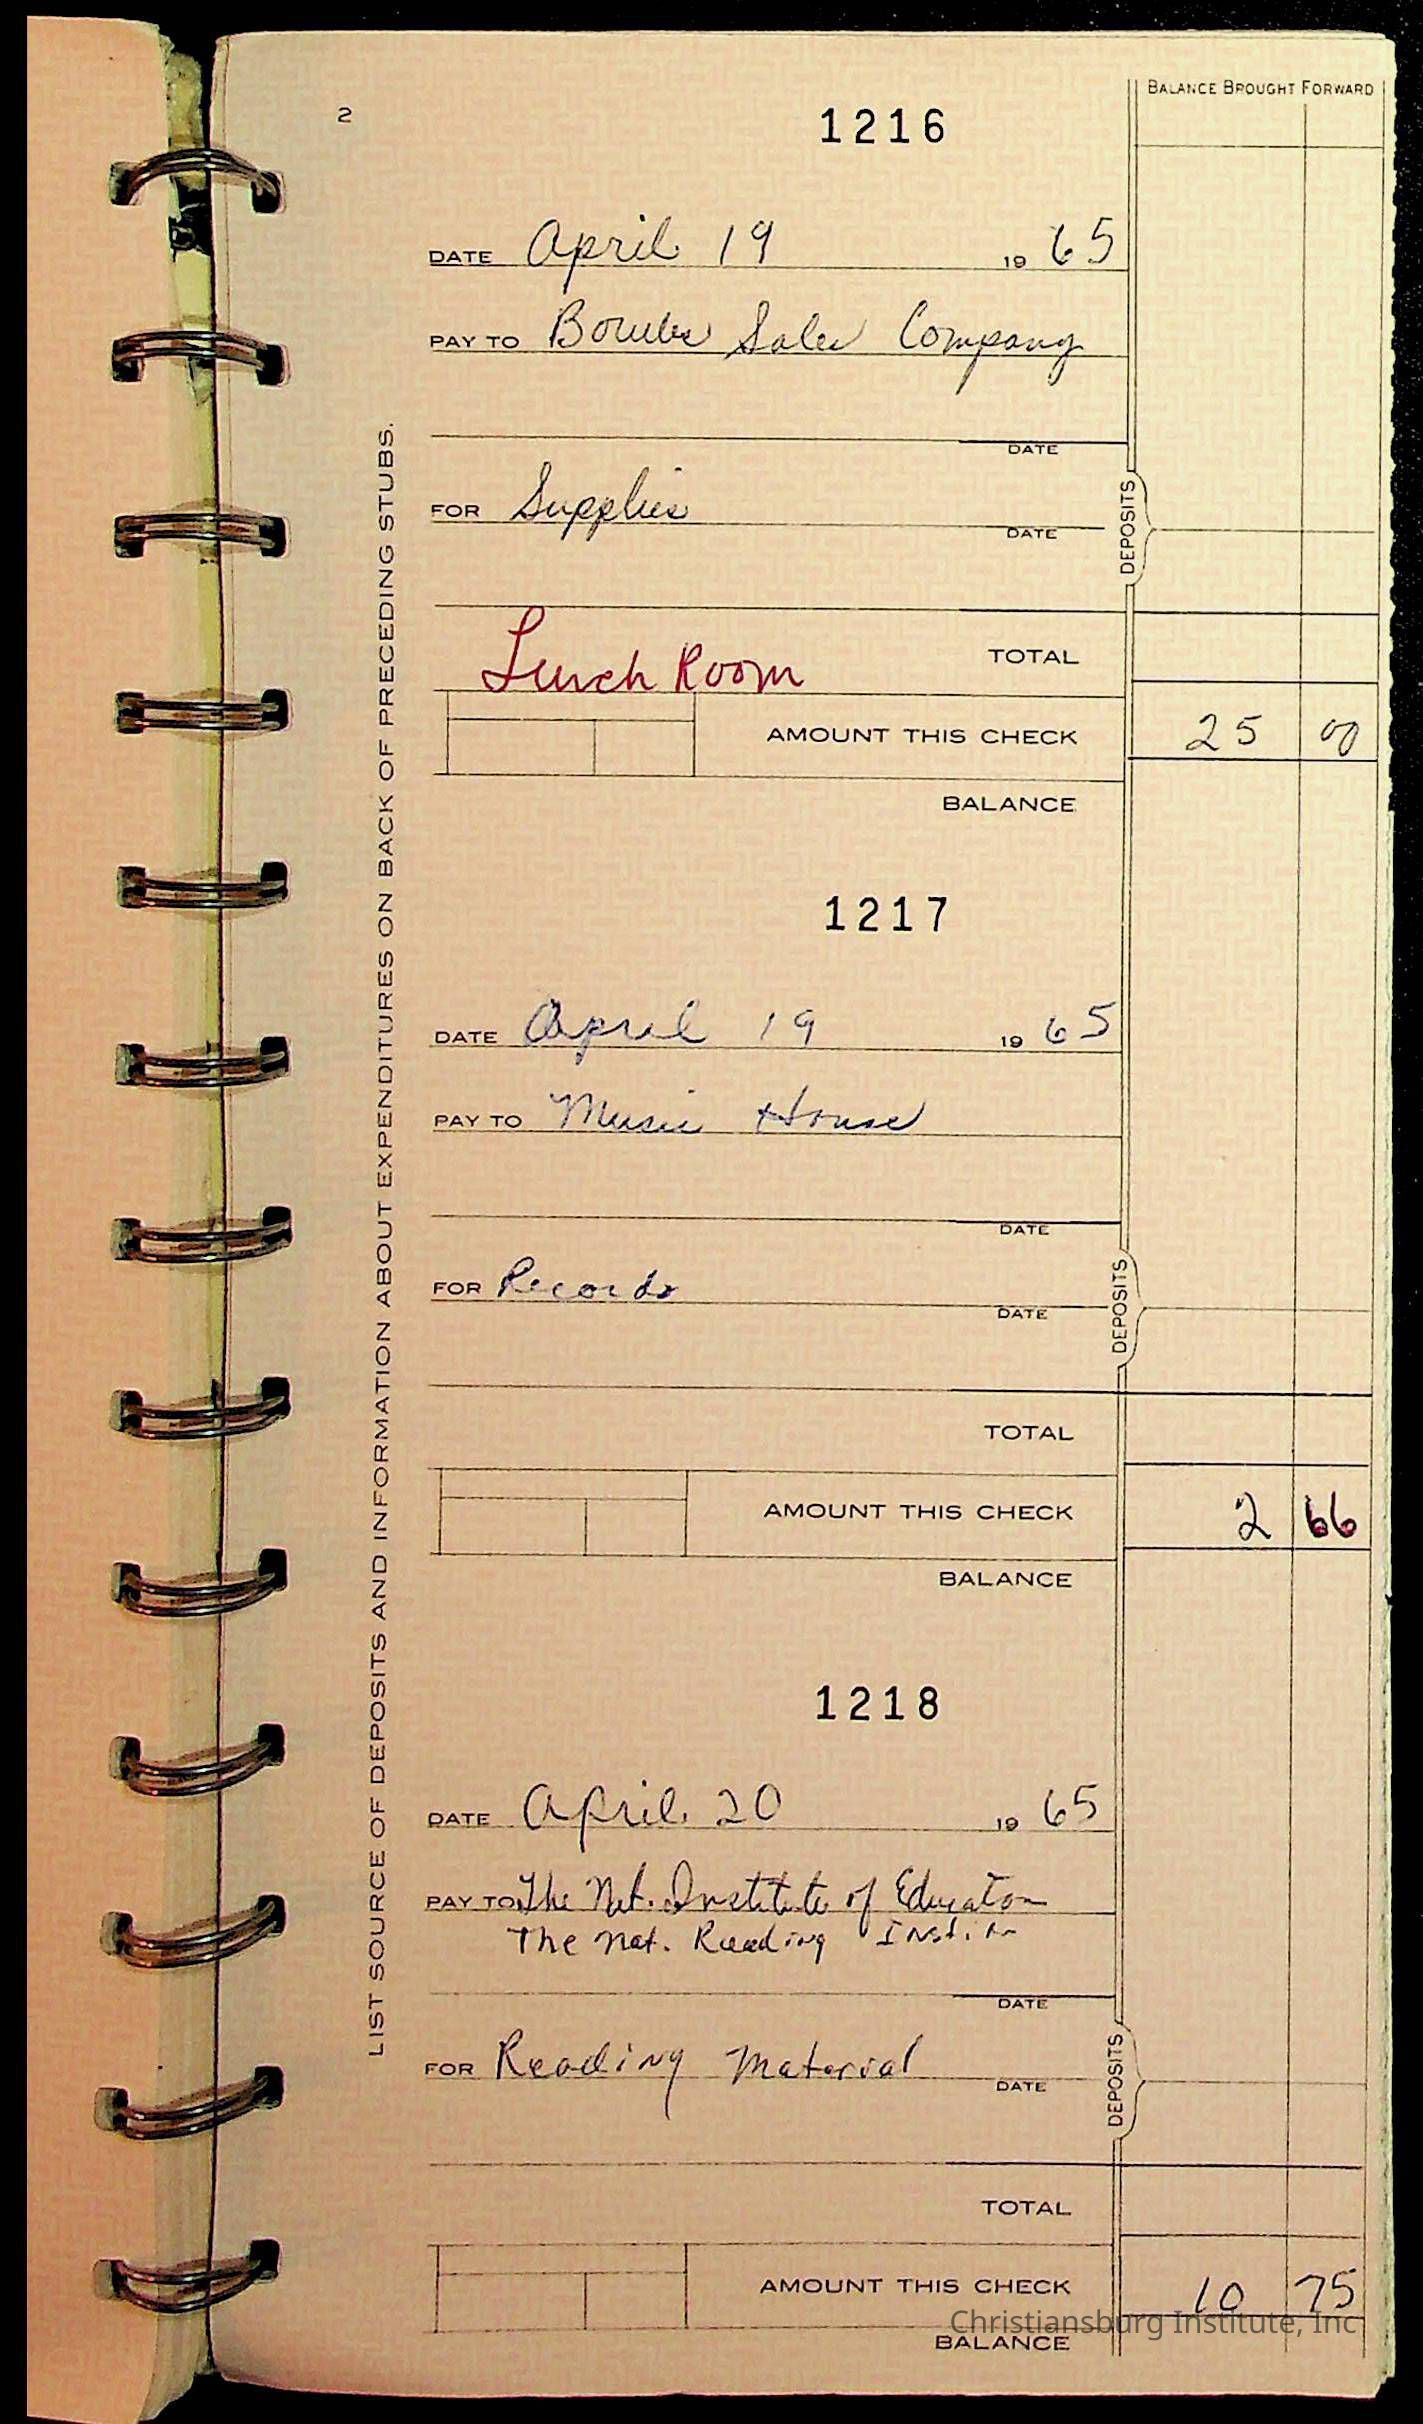 2
BALANCE BROUGHT FORWARD
1216
DATE April 19 19 65
PAY TO Sales Company
DATE
FOR Supplies
DATE
DEPOSITS
Lunch Room TOTAL
AMOUNT THIS CHECK 25 00
BALANCE
1217
DATE April 19 19 65
PAY TO Music House
DATE
FOR Records
DATE
DEPOSITS
TOTAL
AMOUNT THIS CHECK 2 66
BALANCE
1218
DATE April 20 19 65
PAY TO The Nat. Institute of Education
The Nat. Reading
DATE
FOR Reading Material
DATE
DEPOSITS
TOTAL
AMOUNT THIS CHECK 10 75
BALANCE
LIST SOURCE OF DEPOSITS AND INFORMATION ABOUT EXPENDITURES ON BACK OF PRECEDING STUBS.
Christiansburg Institute, Inc